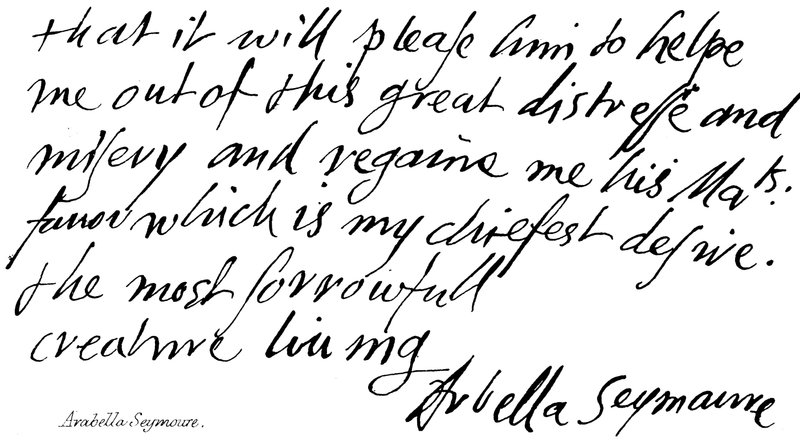 that it will pleaſe him to helpe
me out of this great diſtreſſe and
miſery and regaine me his Maᵗˢ.
fauor which is my chiefest deſire.
the most ſorrowfull
creature liuing
Arbella Seymaure
Arabella Seymoure.